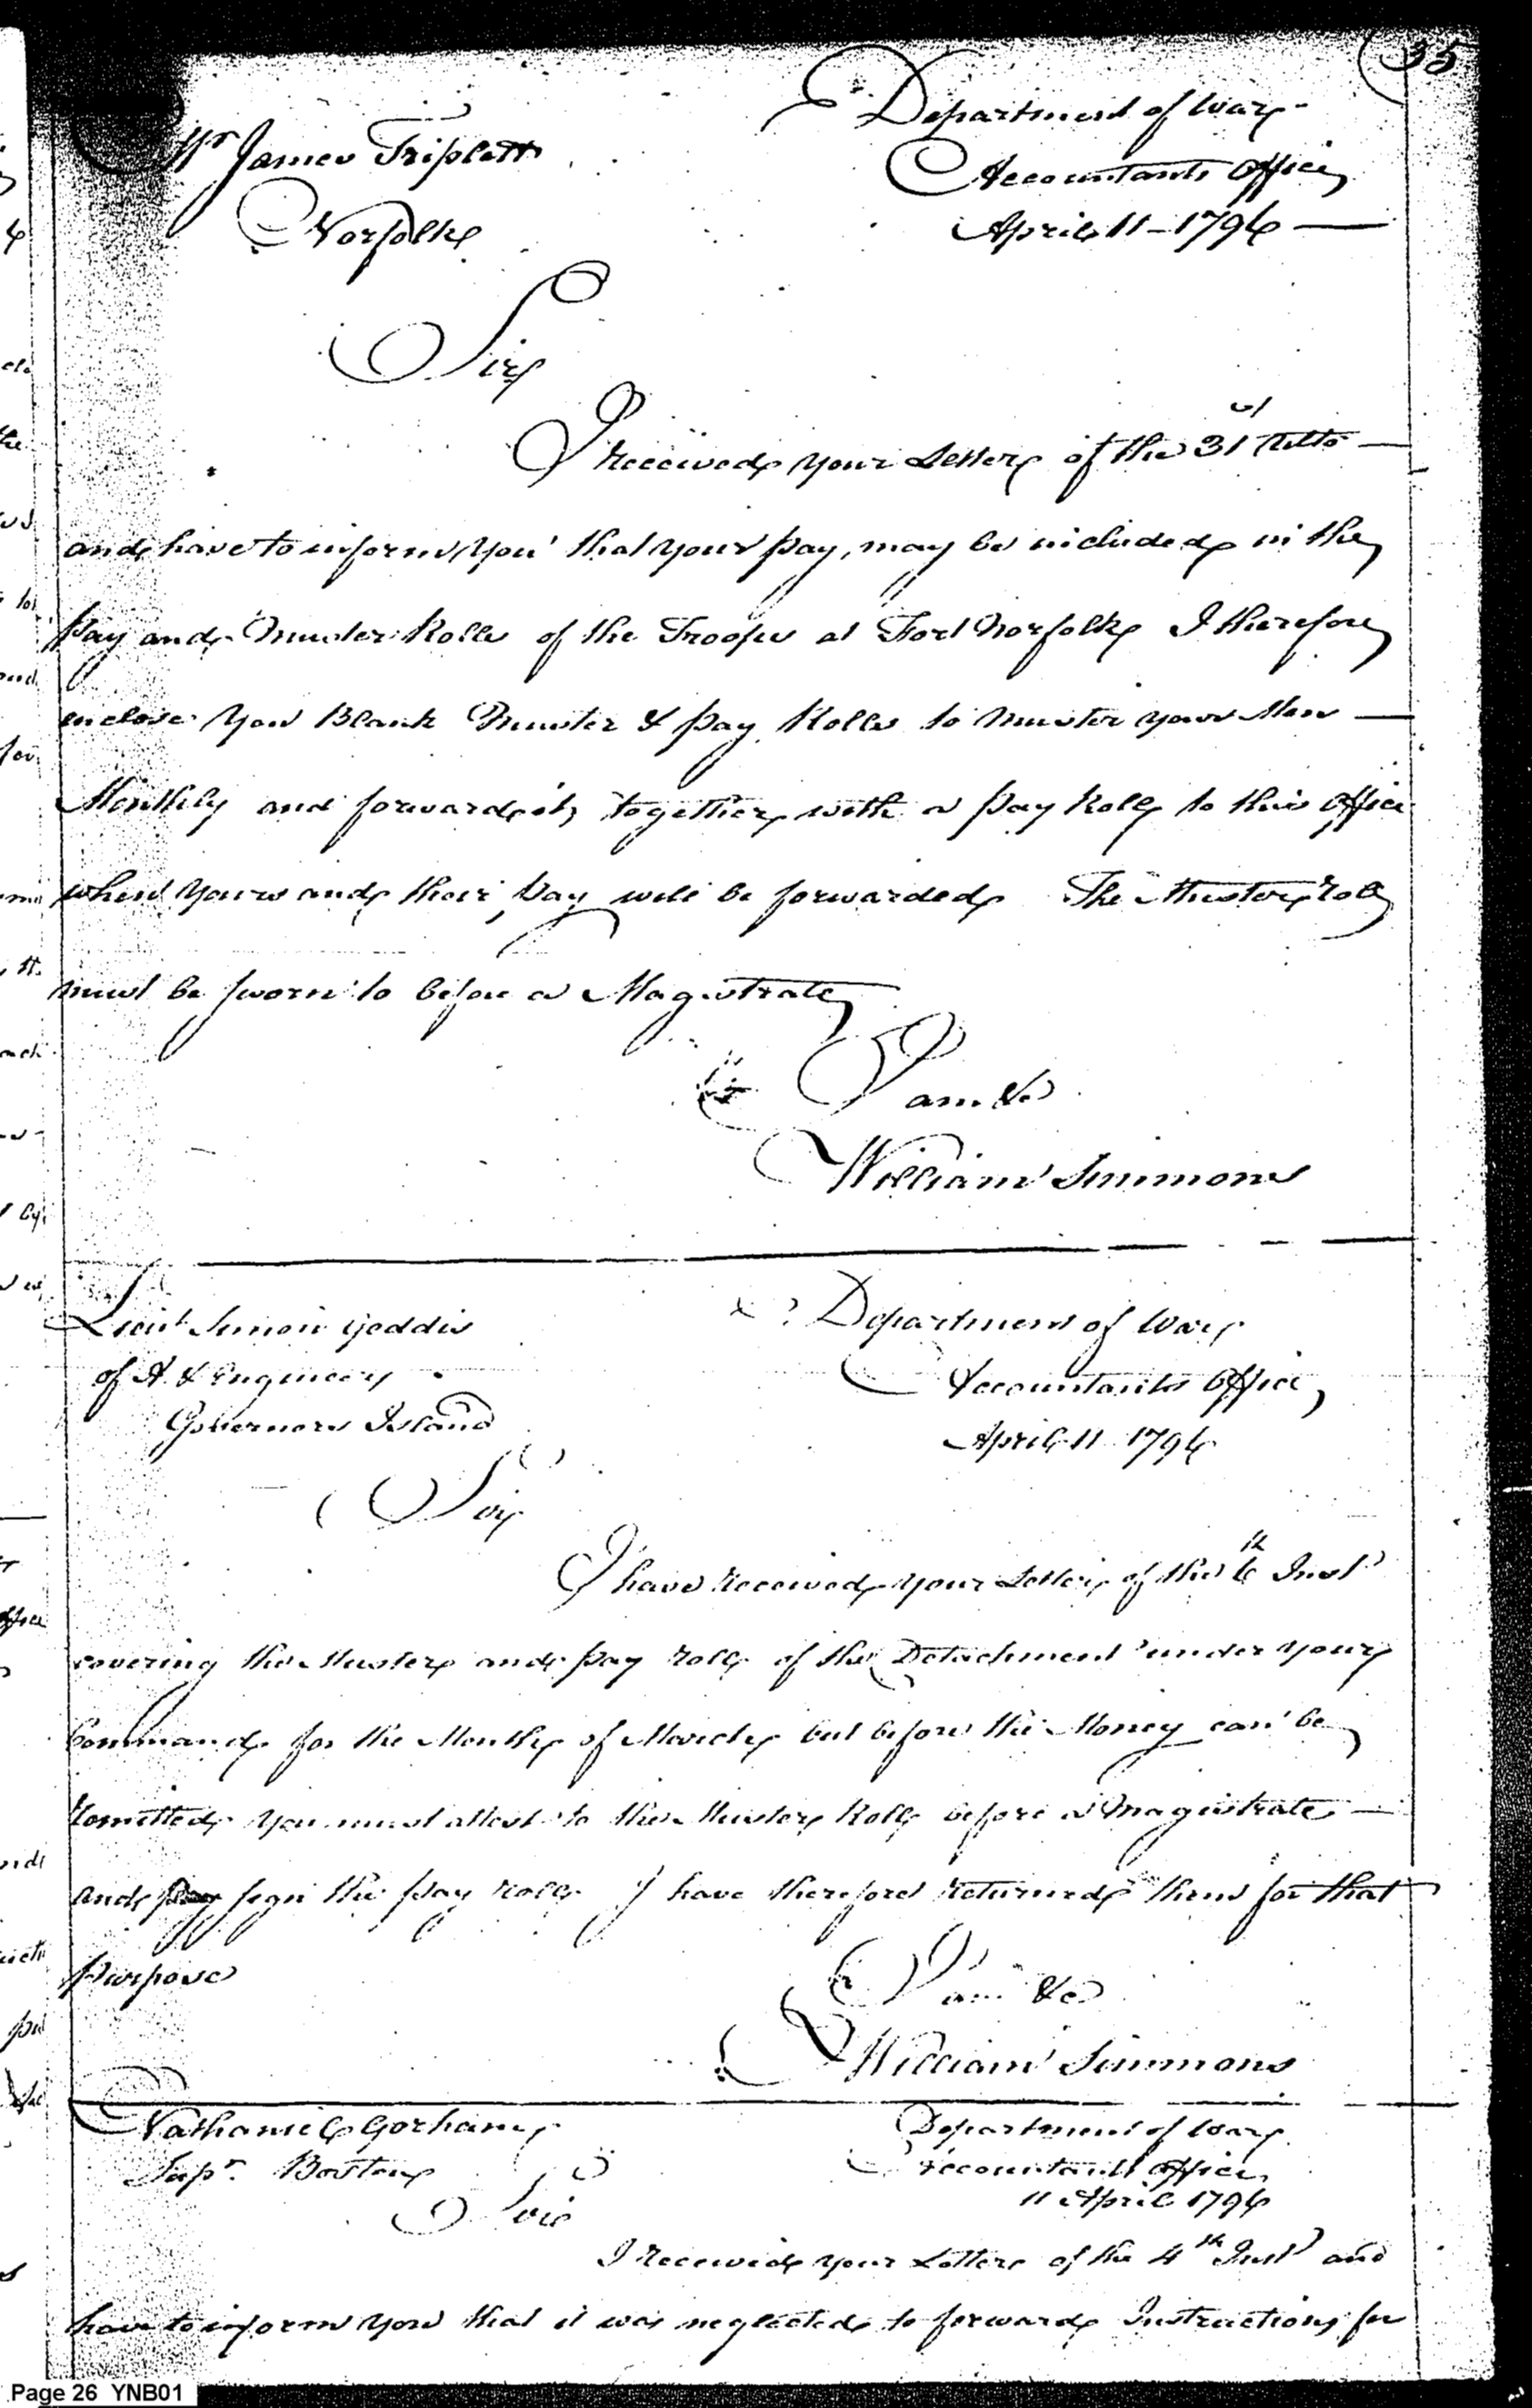 35
Department of War
Mr James Triplett
Accountants Office
Norfolk
April 11 - 1796
Sir
I received your Letter of the 31 st Ulto
and have to inform you that your pay, may be included in the
pay and Muster Rolls of the Troops at Fort Norfolk I therefore
enclose You Blank Muster & pay Rolls to Muster your Men
Monthly and forward it, together with a pay Roll to this Office
when Yours and their Pay will be forwarded The Muster roll
must be sworn to before a Magistrate
I am &c
William Simmons
Lieut Simon Geddis
of A. & Engineers
Governors Island
Department of War
Accountants Office
April 11 1796
Sir
I have received your Letter of the 6 th Inst
covering the Muster and pay roll of the Detachment under your
Command for the Month of March but before the Money can be
remitted you must attest to the Muster Roll before a Magistrate
and pay sign the pay roll I have therefore returned them for that
purpose
I am &c
William Simmons
Nathaniel Gorham
Supr. Boston
Department of War
Accountants Office
11 April 1796
Sir
I received your Letter of the 4th Inst and
have to inform you that it was neglected to forward Instructions for
Page 26 YNB01